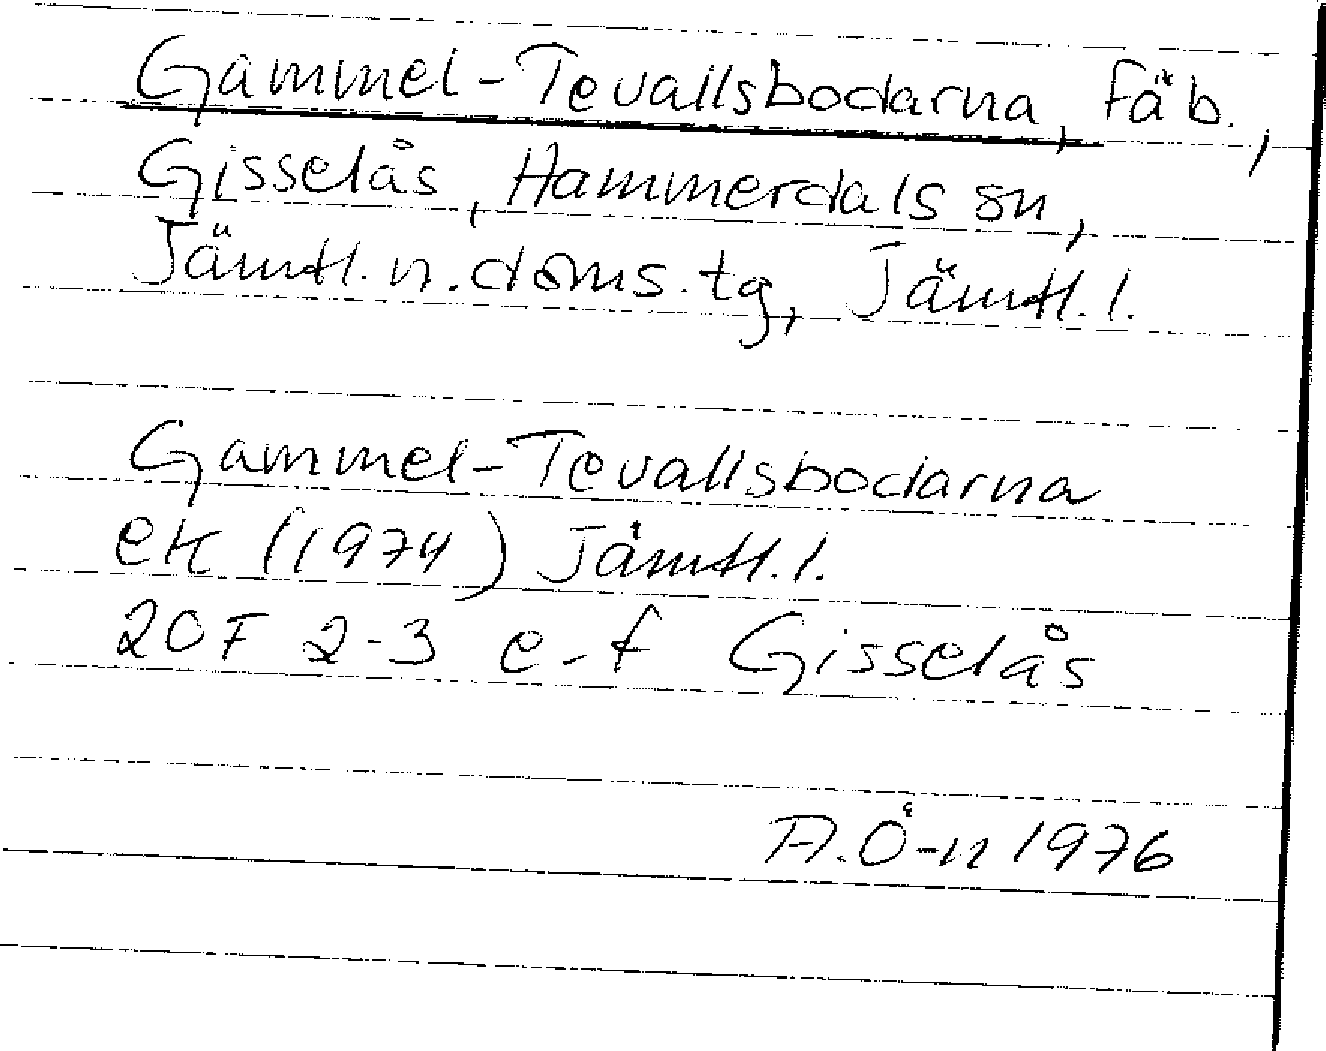 Gammel-Tevallsbodarna, fäb.,
Gisselås, Hammerdals sn,
Jämtl. n. doms. tg, Jämtl. l.
Gammel-Tevallsbodarna
ek (1974) Jämtl. l.
20F 2-3 e-f Gisselås
A.Ö-n 1976